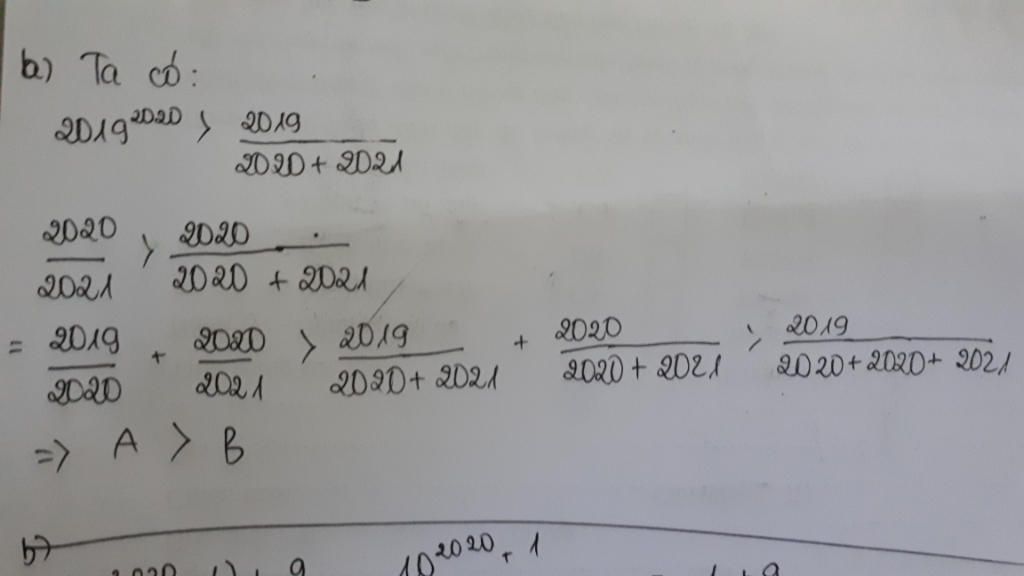 a) Ta có:
2019^2020 > 2019/(2020 + 2021)
2020/2021 > 2020/(2020 + 2021)
= 2019/2020 + 2020/2021 > 2019/(2020 + 2021) + 2020/(2020 + 2021) > 2019/(2020 + 2020 + 2021)
=> A > B
b)
10^2020 + 1